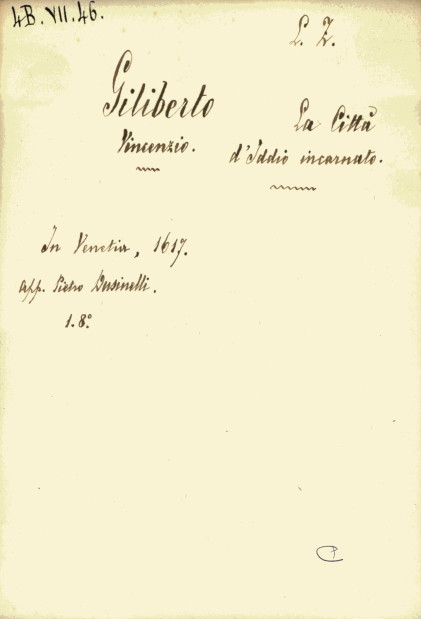 4B.VII.46.
L. Z.
Giliberto
Vincenzio.
La Città
d'Iddio incarnato.
In Venetia, 1617.
app. Pietro Dusinelli.
1. 8°